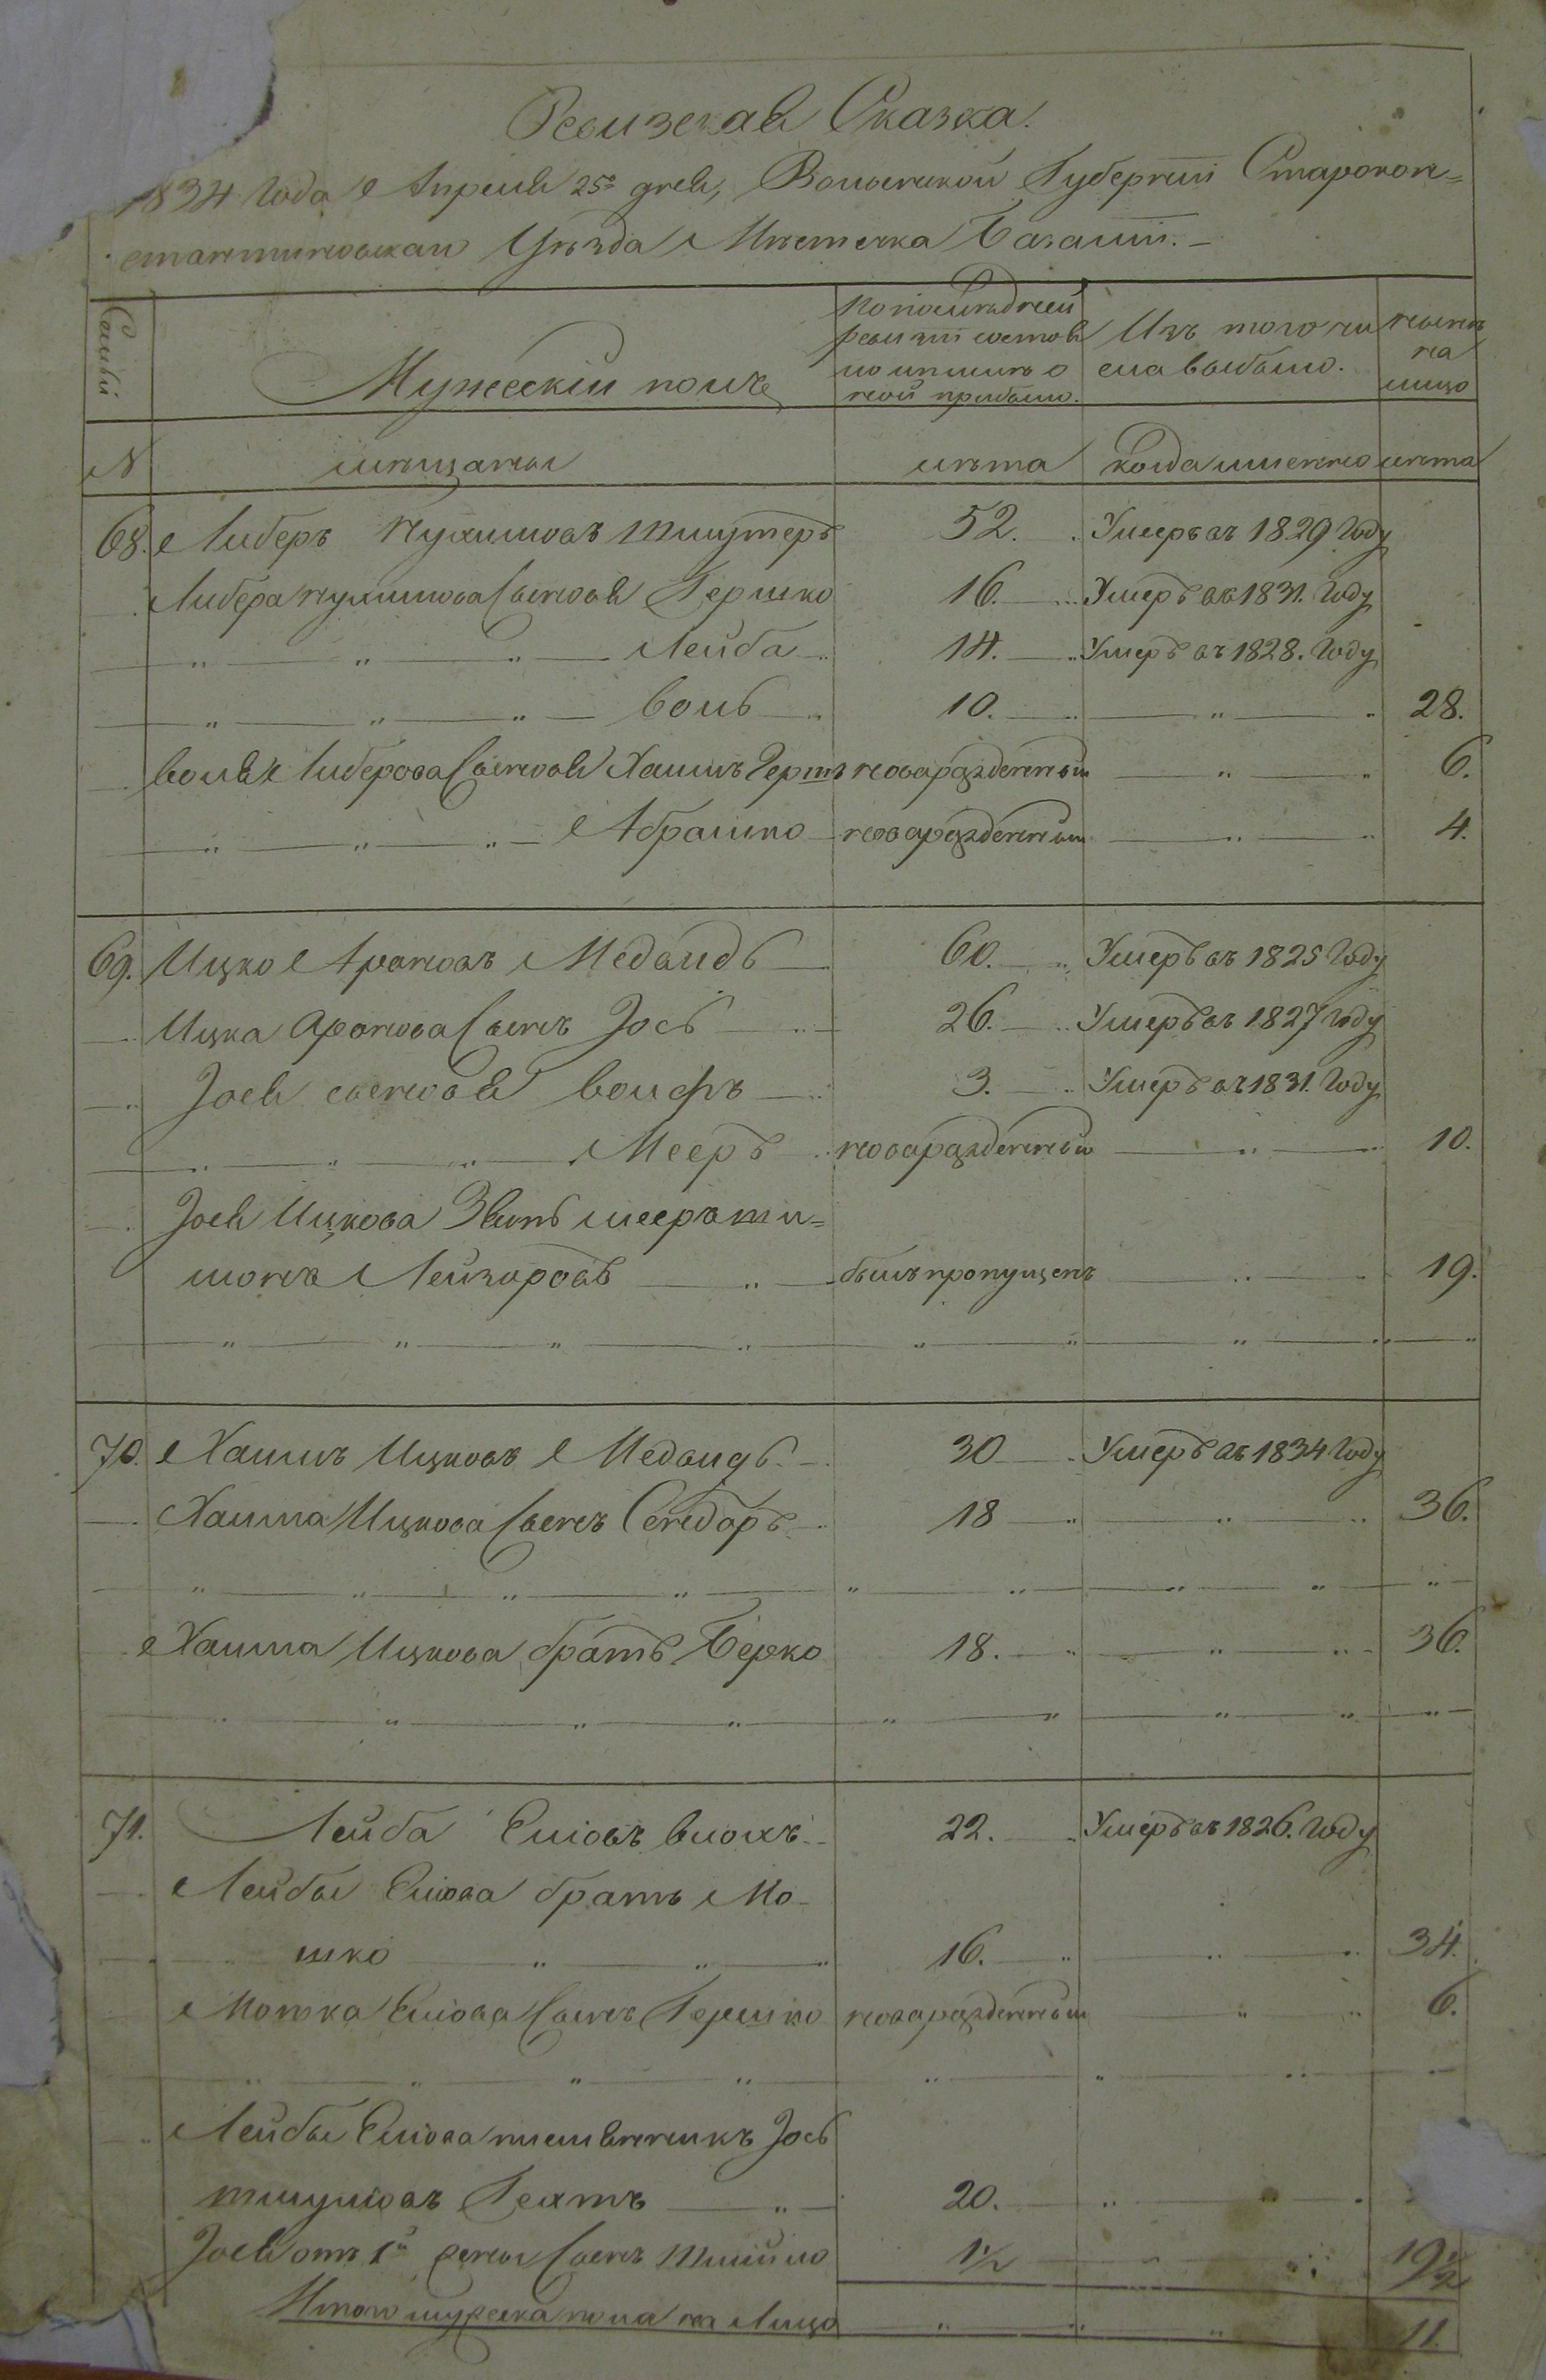 Ревизская Сказка.
1834 Года Апреля 25го дня, Волынской Губернiи Старокон=
стантиновскаго Уѣзда Мѣстечка Базалiи. –
Семьи
Мужескiй полъ
По последней ревизiи состояло или послѣ оной прибыло.
Изъ того числа выбыло.
нынѣ на лицо
N мѣщаны лѣта когда именно лѣта
68. Либеръ Нухимовъ 52. Умеръ въ 1829 Году
Либера Нухимова Сыновья Гершко 16. Умеръ въ 1831. Году
" " " Лейба 14. Умеръ въ 1828. Году
" " " Воль 10. " 28.
Воля Либерова Сыновья Хаимъ Гершъ новорожденный " 6.
" " " Абрамко новорожденный " 4.
69. Ицко Ароновъ Медвидь 60. Умеръ въ 1825 Году
Ицка Аронова Сынъ Iось 26. Умеръ въ 1827 Году
Iося сыновья Волфъ 3. Умеръ въ 1831. Году
" " " Мееръ новорожденный " 10.
Iося Ицкова Зять
Лейзоровъ " былъ пропущенъ " 19.
" " " " " " " " "
70. Хаимъ Ицковъ Медвидь 30 Умеръ въ 1834 Году
Хаима Ицкова Сынъ Сендоръ 18 " " 36.
" " " " " " " " "
Хаима Ицкова братъ Берко 18. " " 36.
" " " " " " " " "
71. Лейба Елiовъ Блохъ 22. Умеръ въ 1826. Году
Лейбы Елiова братъ Мо-
шко " " " 16. " " 34.
Мошка Елiова Сынъ Гершко новорожденный " " 6.
" " " " " " "
Лейбы Елiова племянникъ Iось
20. "
Iося отъ 1й жены Сынъ Шмуйло 1½ " 19½
Итого мужеска пола на Лицо " " " 11.